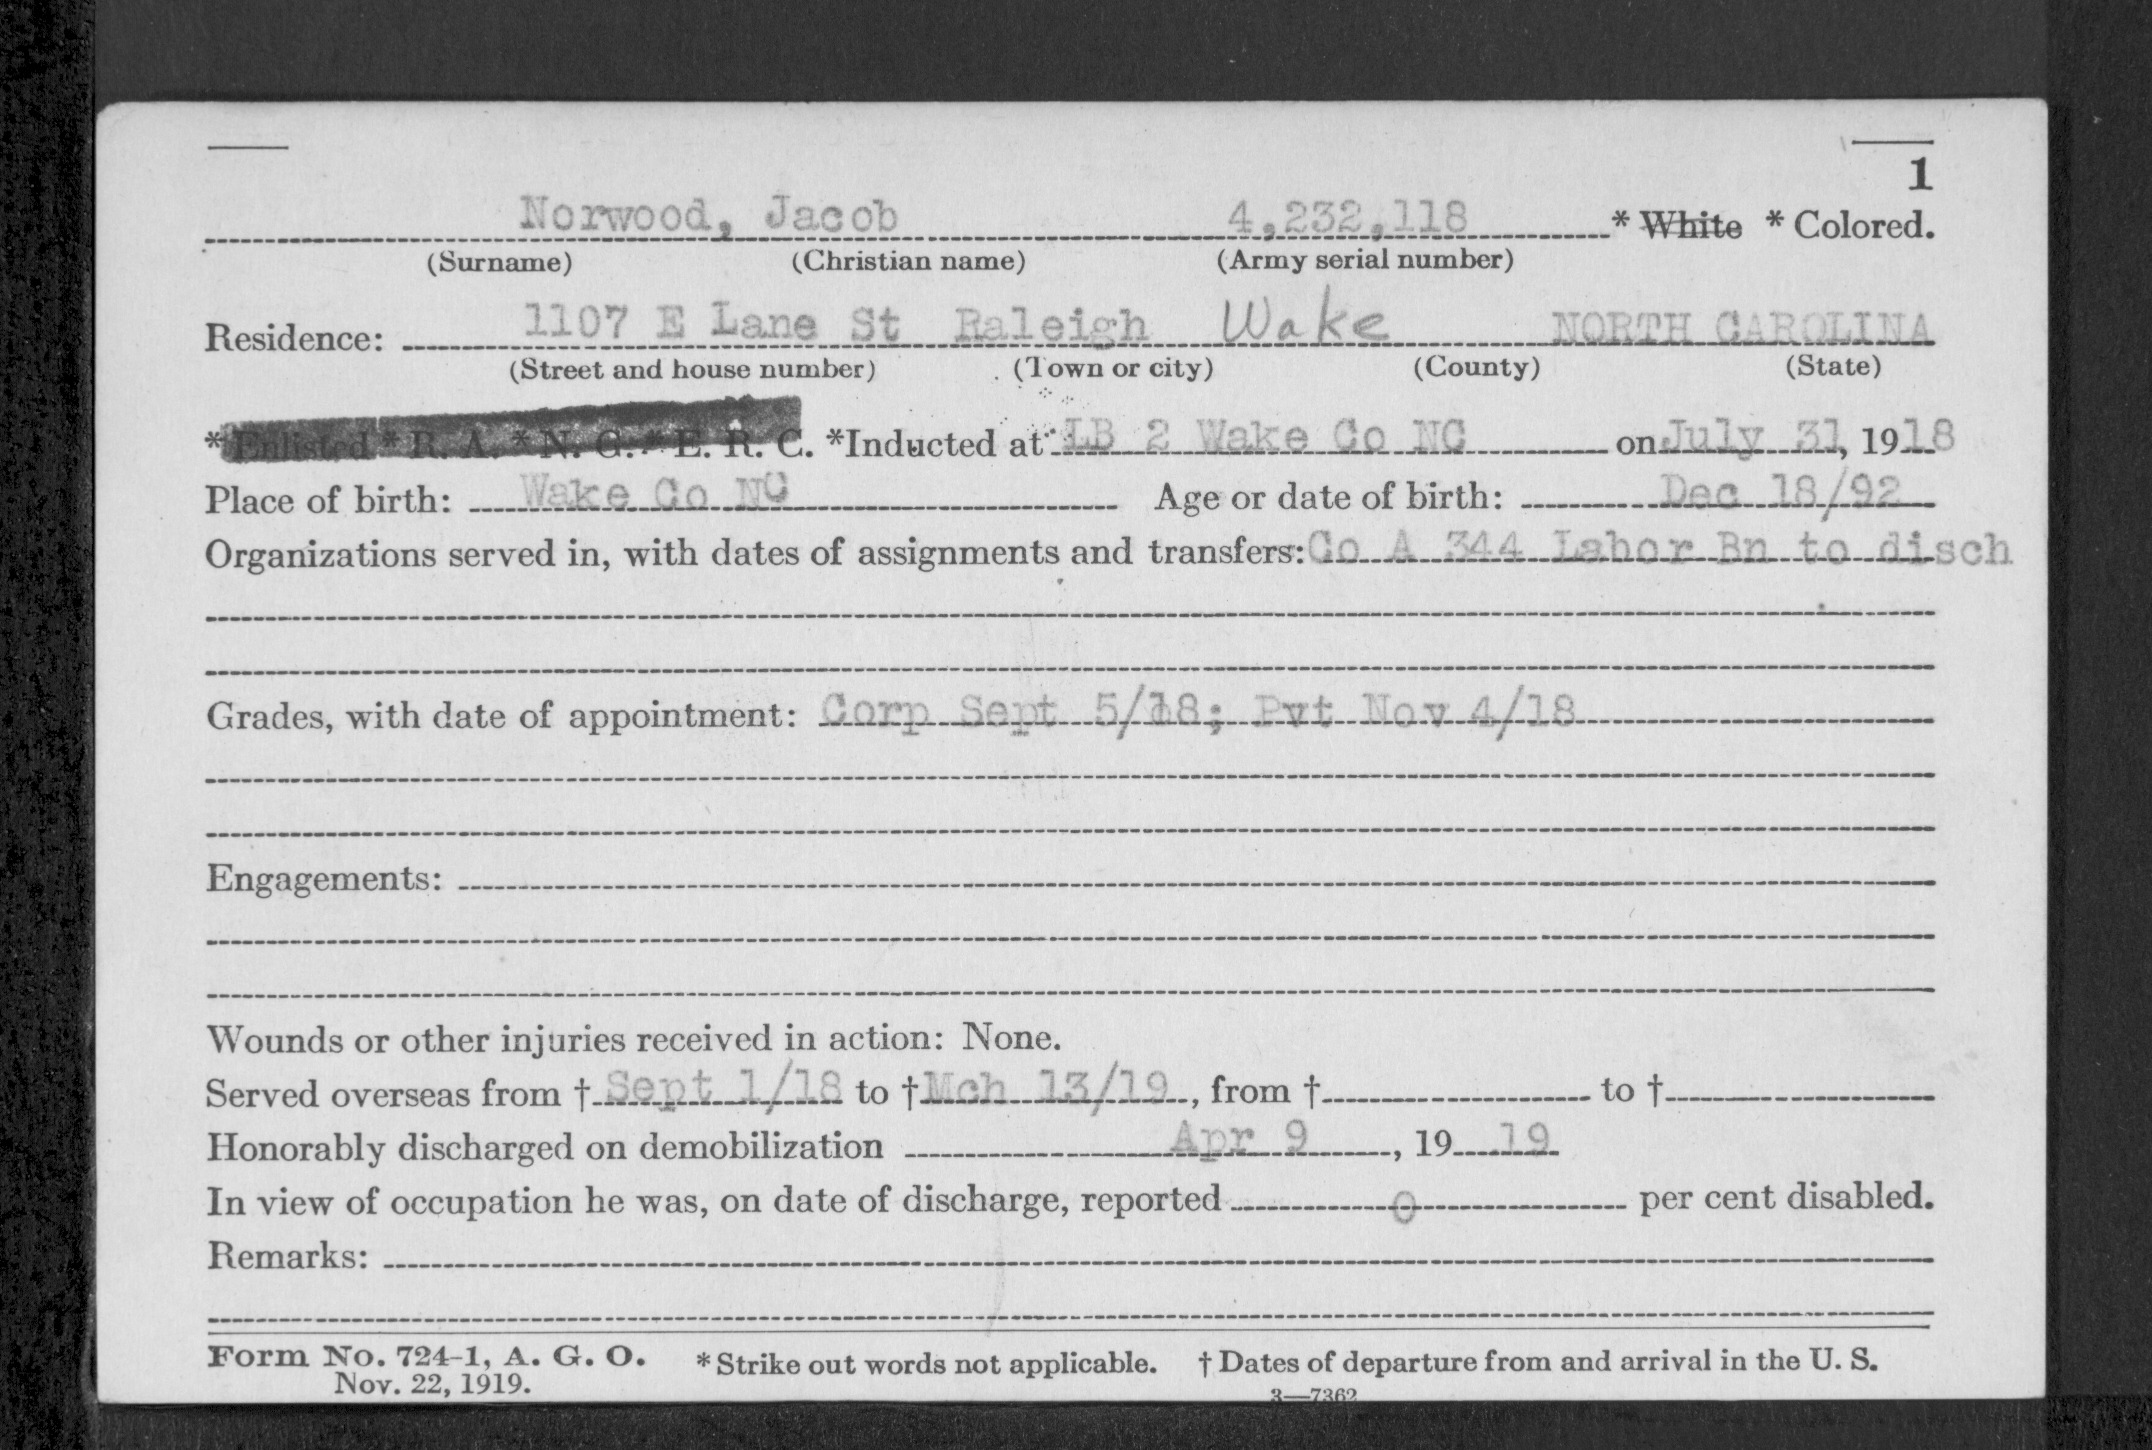 1
Norwood, Jacob 4,232,118 * White * Colored.
(Surname) (Christian name) (Army serial number)
Residence: 1107 E Lane St Raleigh Wake NORTH CAROLINA
(Street and house number) (Town or city) (County) (State)
* Enlisted * R. A. * N. G. * E. R. C. *Inducted at LB 2 Wake Co NC on July 31, 1918
Place of birth: Wake Co NC Age or date of birth: Dec 18/92
Organizations served in, with dates of assignments and transfers: Co A 344 Labor Bn to disch
Grades, with date of appointment: Corp Sept 5/18; Pvt Nov 4/18
Engagements:
Wounds or other injuries received in action: None.
Served overseas from † Sept 1/18 to † Mch 13/19, from † to †
Honorably discharged on demobilization Apr 9, 19 19
In view of occupation he was, on date of discharge, reported 0 per cent disabled.
Remarks:
Form No. 724-1, A. G. O. * Strike out words not applicable. † Dates of departure from and arrival in the U. S.
Nov. 22, 1919. 3—7362